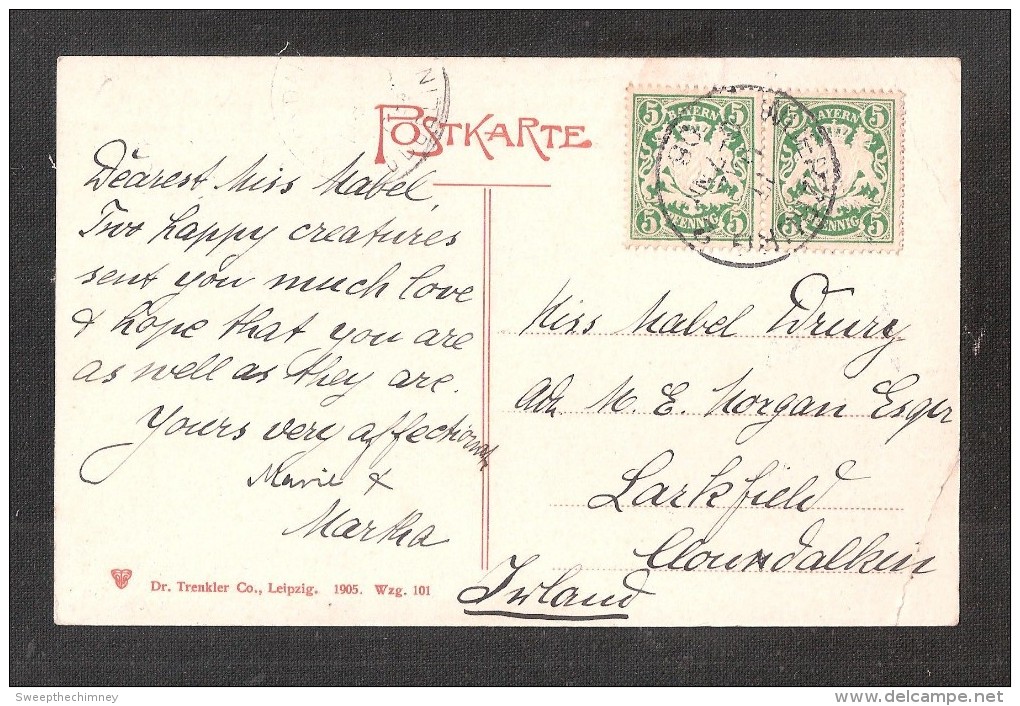 POSTKARTE
Dearest Miss Mabel,
Two happy creatures
sent you much love
& hope that you are
as well as they are.
Yours very affectionately
Marie &
Martha
5 5
BAYERN
5 5
PFENNIG
5 5
BAYERN
5 5
PFENNIG
Miss Mabel Drury
adr. M. E. Morgan Esqr
Larkfield
Clondalkin
Irland
Dr. Trenkler Co., Leipzig. 1905. Wzg. 101
Sweepthechimney
www.delcampe.net